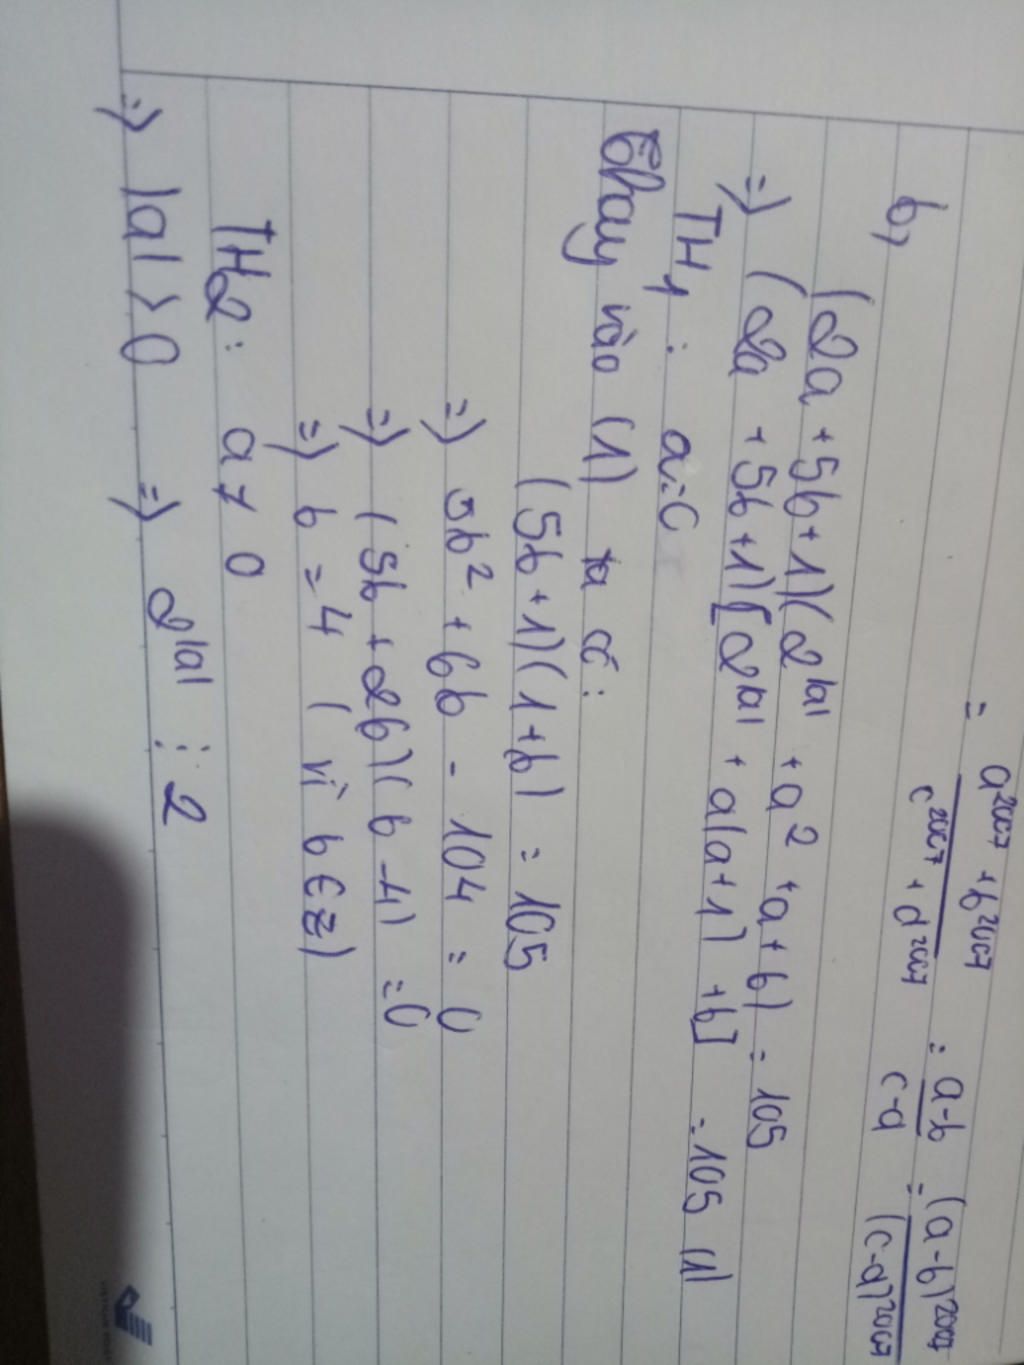 = a²⁰⁰⁷ + b²⁰⁰⁷ / c²⁰⁰⁷ + d²⁰⁰⁷ = a-b / c-d = (a-b)²⁰⁰⁷ / (c-d)²⁰⁰⁷
b, (2a + 5b + 1)(2^|a| + a² + a + b) = 105
=> (2a + 5b + 1)[2^|a| + a(a+1) + b] = 105 (1)
TH1 : a = 0
Thay vào (1) ta có :
(5b + 1)(1 + b) = 105
=> 5b² + 6b - 104 = 0
=> (5b + 26)(b - 4) = 0
=> b = 4 ( vì b ∈ z)
TH2 : a ≠ 0
=> |a| > 0 => 2^|a| ⋮ 2